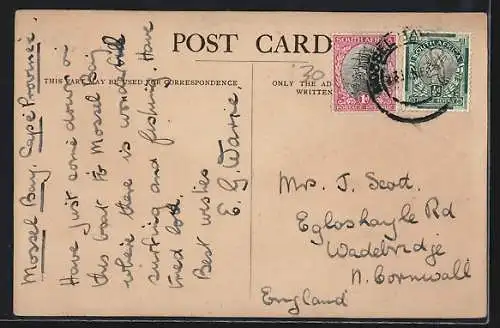 POST CARD
THIS PART MAY BE USED FOR CORRESPONDENCE
ONLY THE AD
WRITTEN
30
SOUTH AFRICA
1D
SOUTH AFRICA
½D
MOSSEL BA
Mossel Bay. Cape Province
Have just come down on
this boat to Mossel Bay
where there is wonderful
surfing and fishing. Have
tried both.
Best wishes
E. G. Warne.
Mrs. J. Scott.
Egloshayle Rd
Wadebridge
N. Cornwall
England